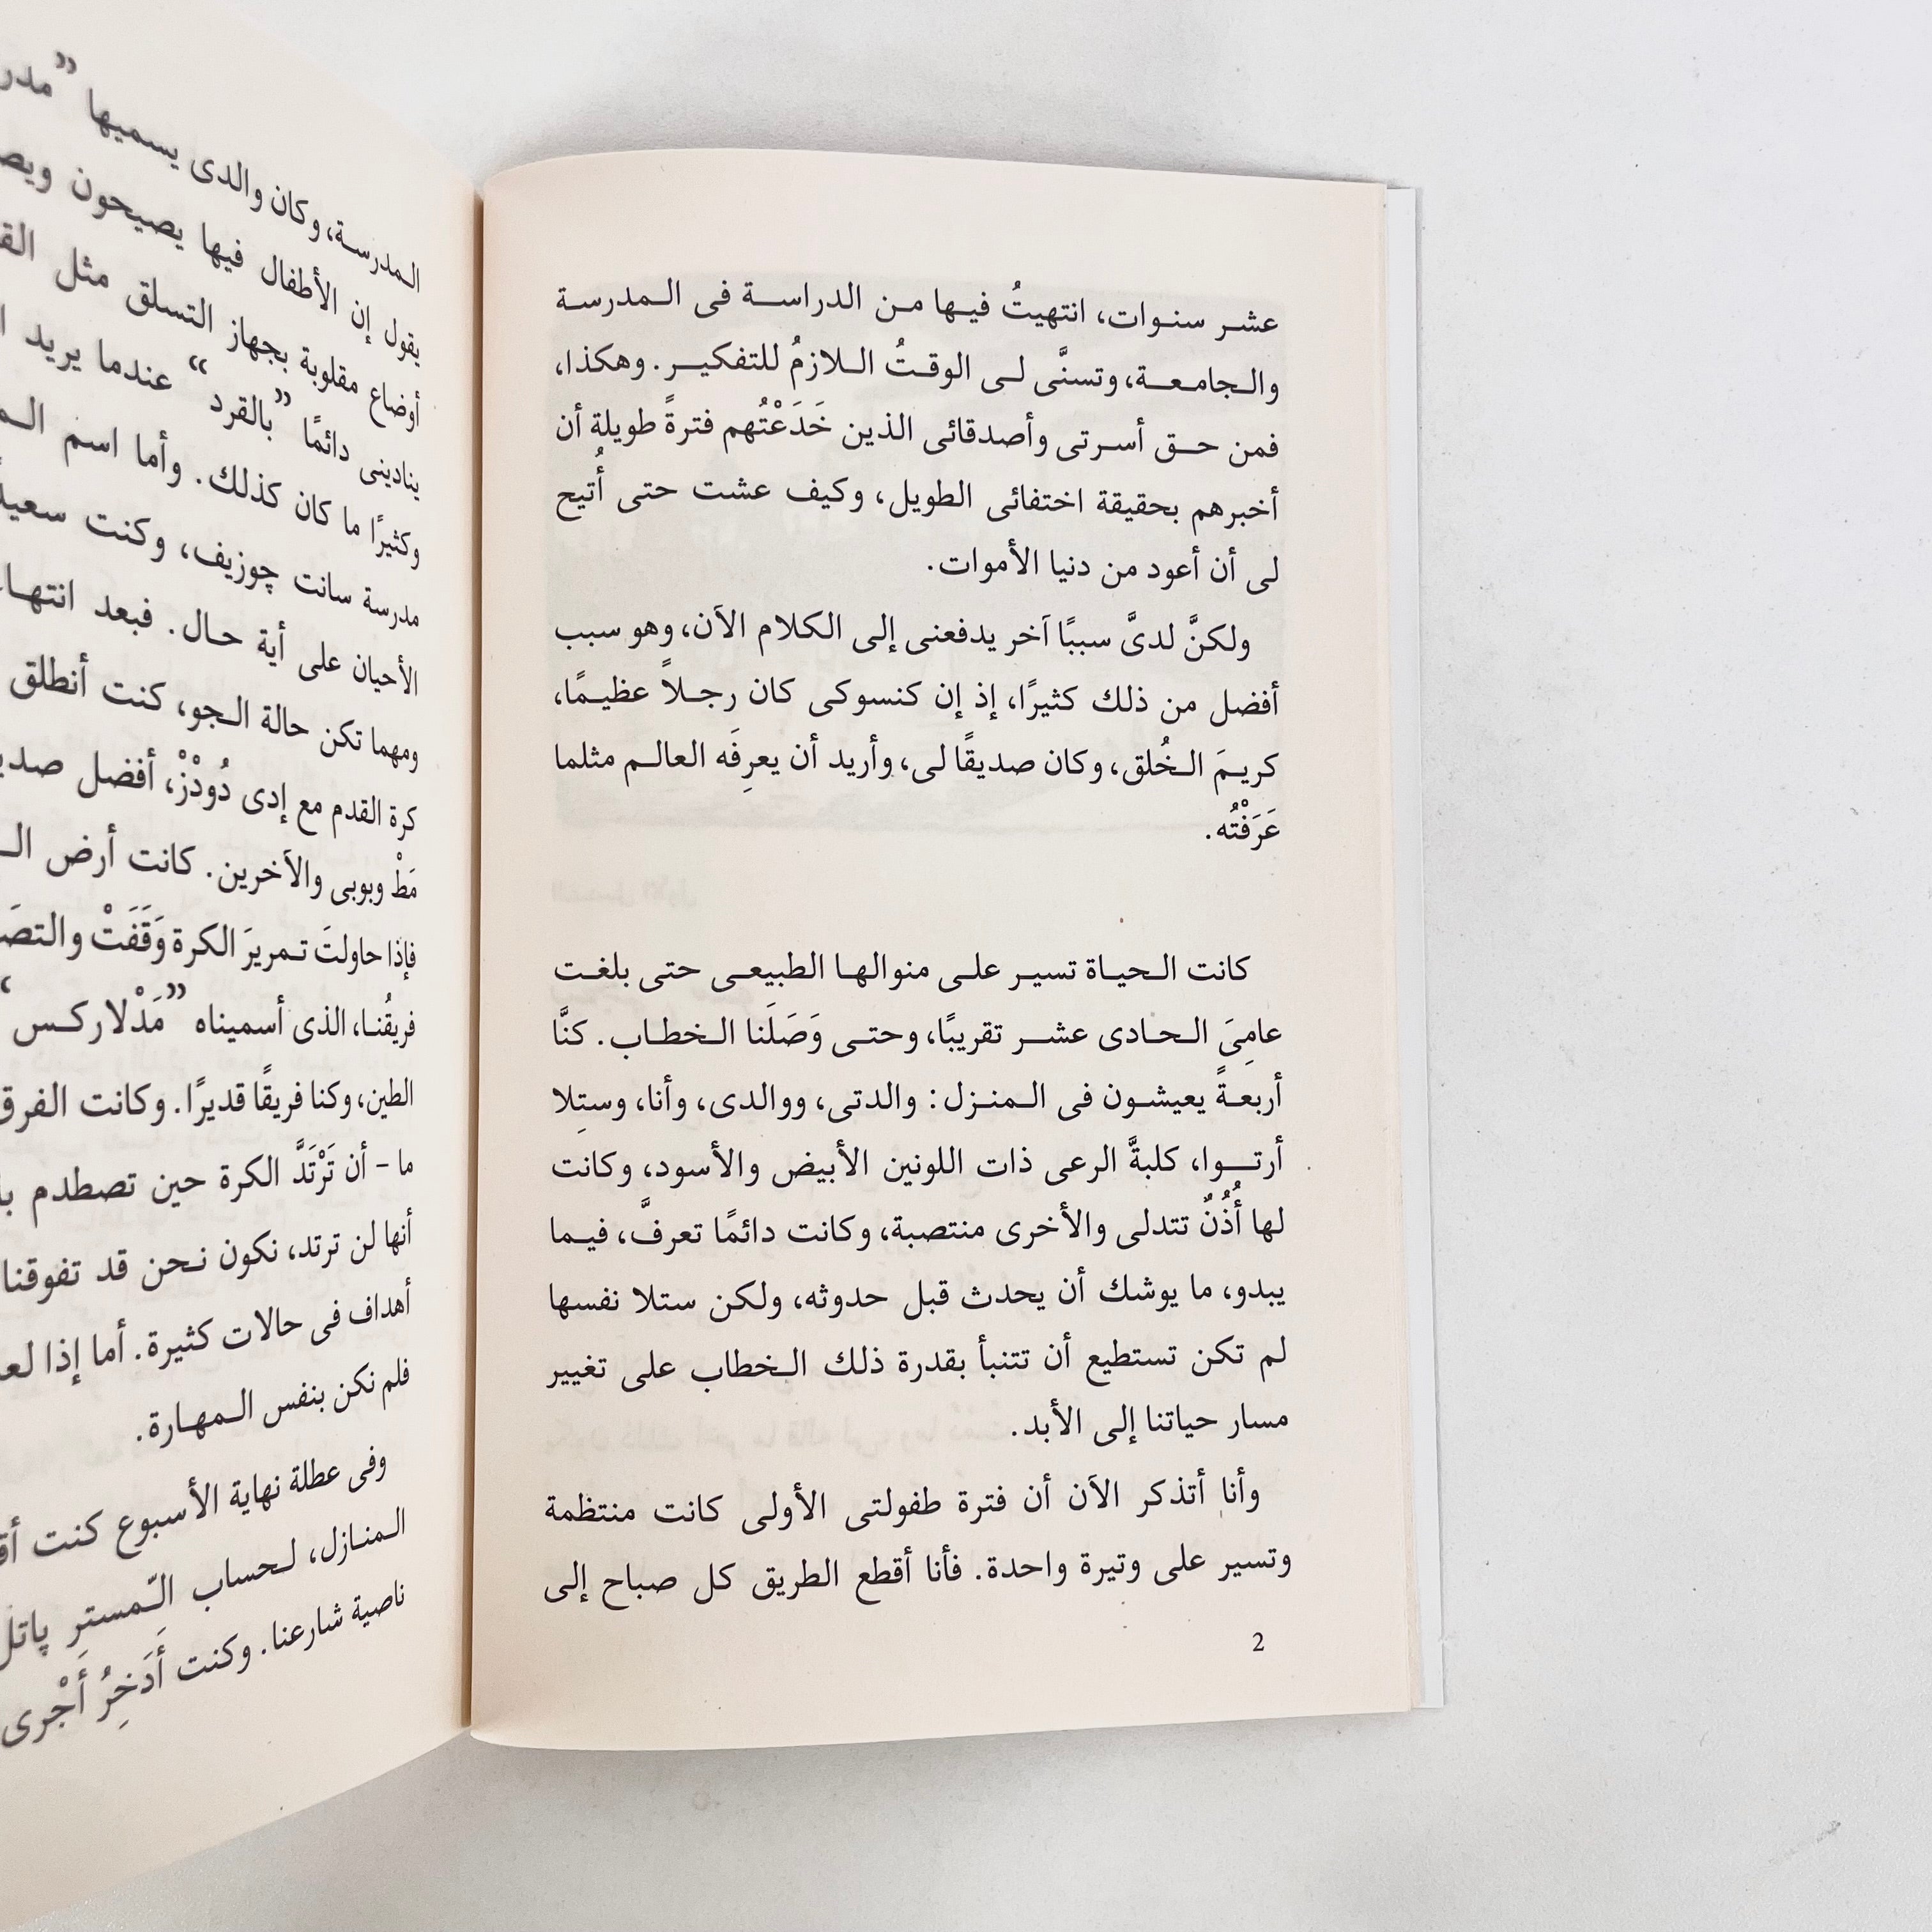 عشر سنوات، انتهيتُ فيها من الدراسة فى المدرسة
والجامعة، وتسنَّى لى الوقتُ اللازمُ للتفكير. وهكذا،
فمن حق أسرتى وأصدقائى الذين خَدَعْتُهم فترةً طويلة أن
أخبرهم بحقيقة اختفائى الطويل، وكيف عشت حتى أُتيح
لى أن أعود من دنيا الأموات.
ولكنَّ لدىَّ سببًا آخر يدفعنى إلى الكلام الآن، وهو سبب
أفضل من ذلك كثيرًا، إذ إن كنسوكى كان رجلاً عظيمًا،
كريمَ الخُلق، وكان صديقًا لى، وأريد أن يعرِفَه العالم مثلما
عَرَفْتُه.
كانت الحياة تسير على منوالها الطبيعى حتى بلغت
عامِىَ الحادى عشر تقريبًا، وحتى وَصَلَنا الخطاب. كنَّا
أربعةً يعيشون فى المنزل: والدتى، ووالدى، وأنا، وستِلا
أرتوا، كلبةَّ الرعى ذات اللونين الأبيض والأسود، وكانت
لها أُذُنٌ تتدلى والأخرى منتصبة، وكانت دائمًا تعرفَّ، فيما
يبدو، ما يوشك أن يحدث قبل حدوثه، ولكن ستلا نفسها
لم تكن تستطيع أن تتنبأ بقدرة ذلك الخطاب على تغيير
مسار حياتنا إلى الأبد.
وأنا أتذكر الآن أن فترة طفولتى الأولى كانت منتظمة
وتسير على وتيرة واحدة. فأنا أقطع الطريق كل صباح إلى
2
المدرسة، وكان والدى يسميها ”
يقول إن الأطفال فيها يصيحون
أوضاع مقلوبة بجهاز التسلق مثل
ينادينى دائمًا ”بالقرد“ عندما يريد
وكثيرًا ما كان كذلك. وأما اسم
مدرسة سانت چوزيف، وكنت
الأحيان على أية حال. فبعد
ومهما تكن حالة الجو، كنت أنطلق
كرة القدم مع إدى دُودْزْ، أفضل
مَطْ وبوبى والآخرين. كانت أرض
فإذا حاولتَ تمريرَ الكرة وَقَفَتْ
فريقُنا، الذى أسميناه ”مَدْلاركس“
الطين، وكنا فريقًا قديرًا. وكانت الفرق
ما - أن تَرْتَدَّ الكرة حين تصطدم
أنها لن ترتد، نكون نحن قد تفوقنا
أهداف فى حالات كثيرة. أما إذا
فلم نكن بنفس المهارة.
وفى عطلة نهاية الأسبوع كنت
المنازل، لحساب المّستر پاتل
ناصية شارعنا. وكنت أَدَخِرُ أَجْرى